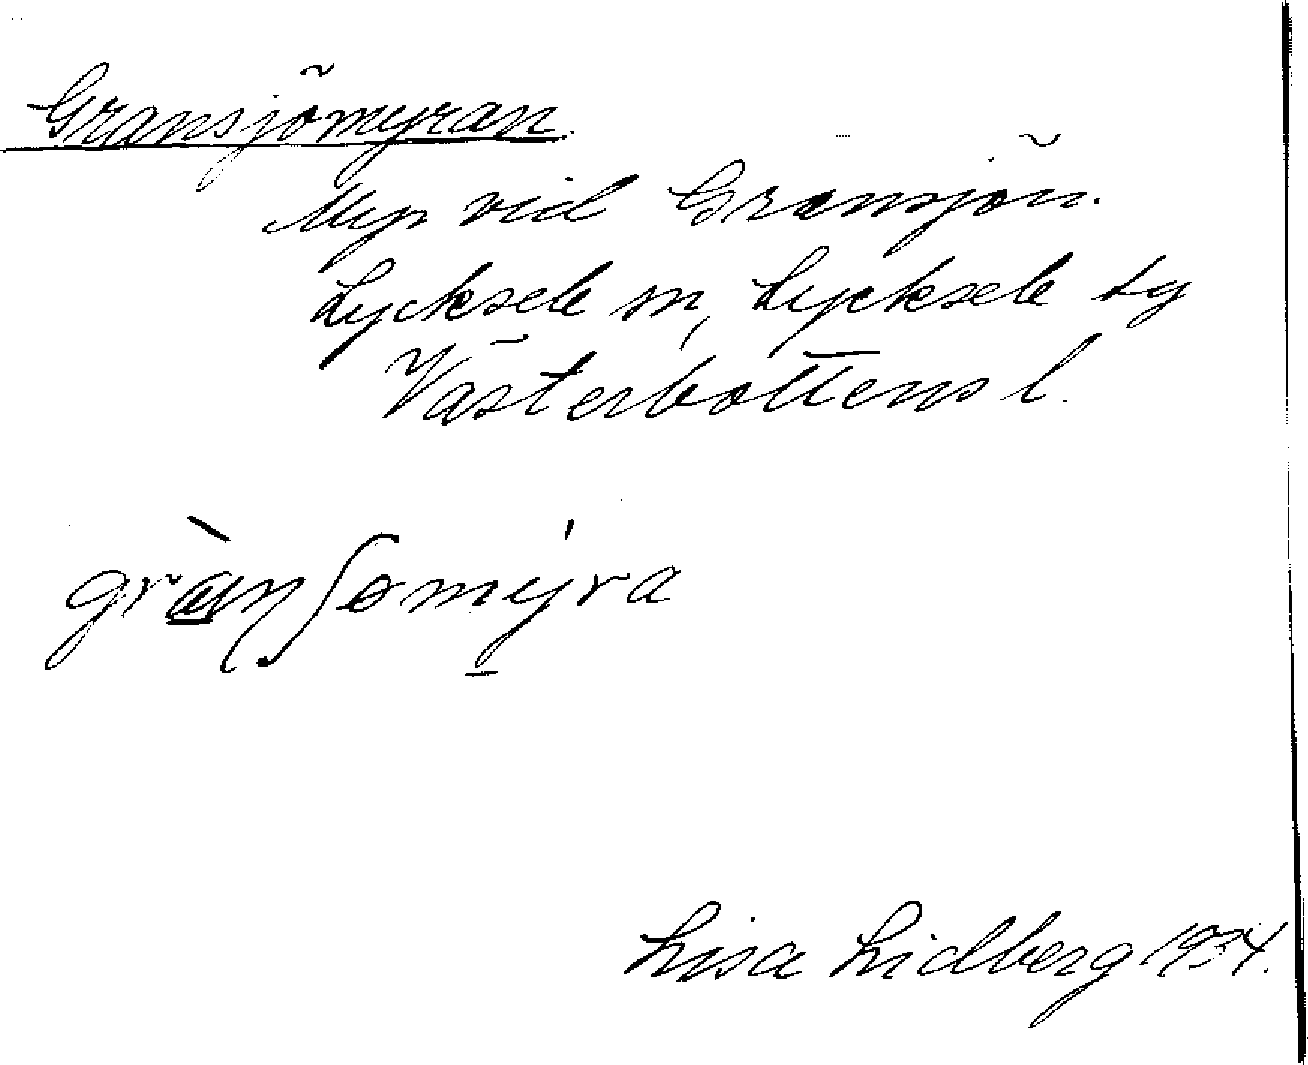 Gransjömyran.
Myr vid Gransjön.
Lycksele sn, Lycksele tg
Västerbottens l.
grànʃomý̱ra
Lisa Lidberg 1934.